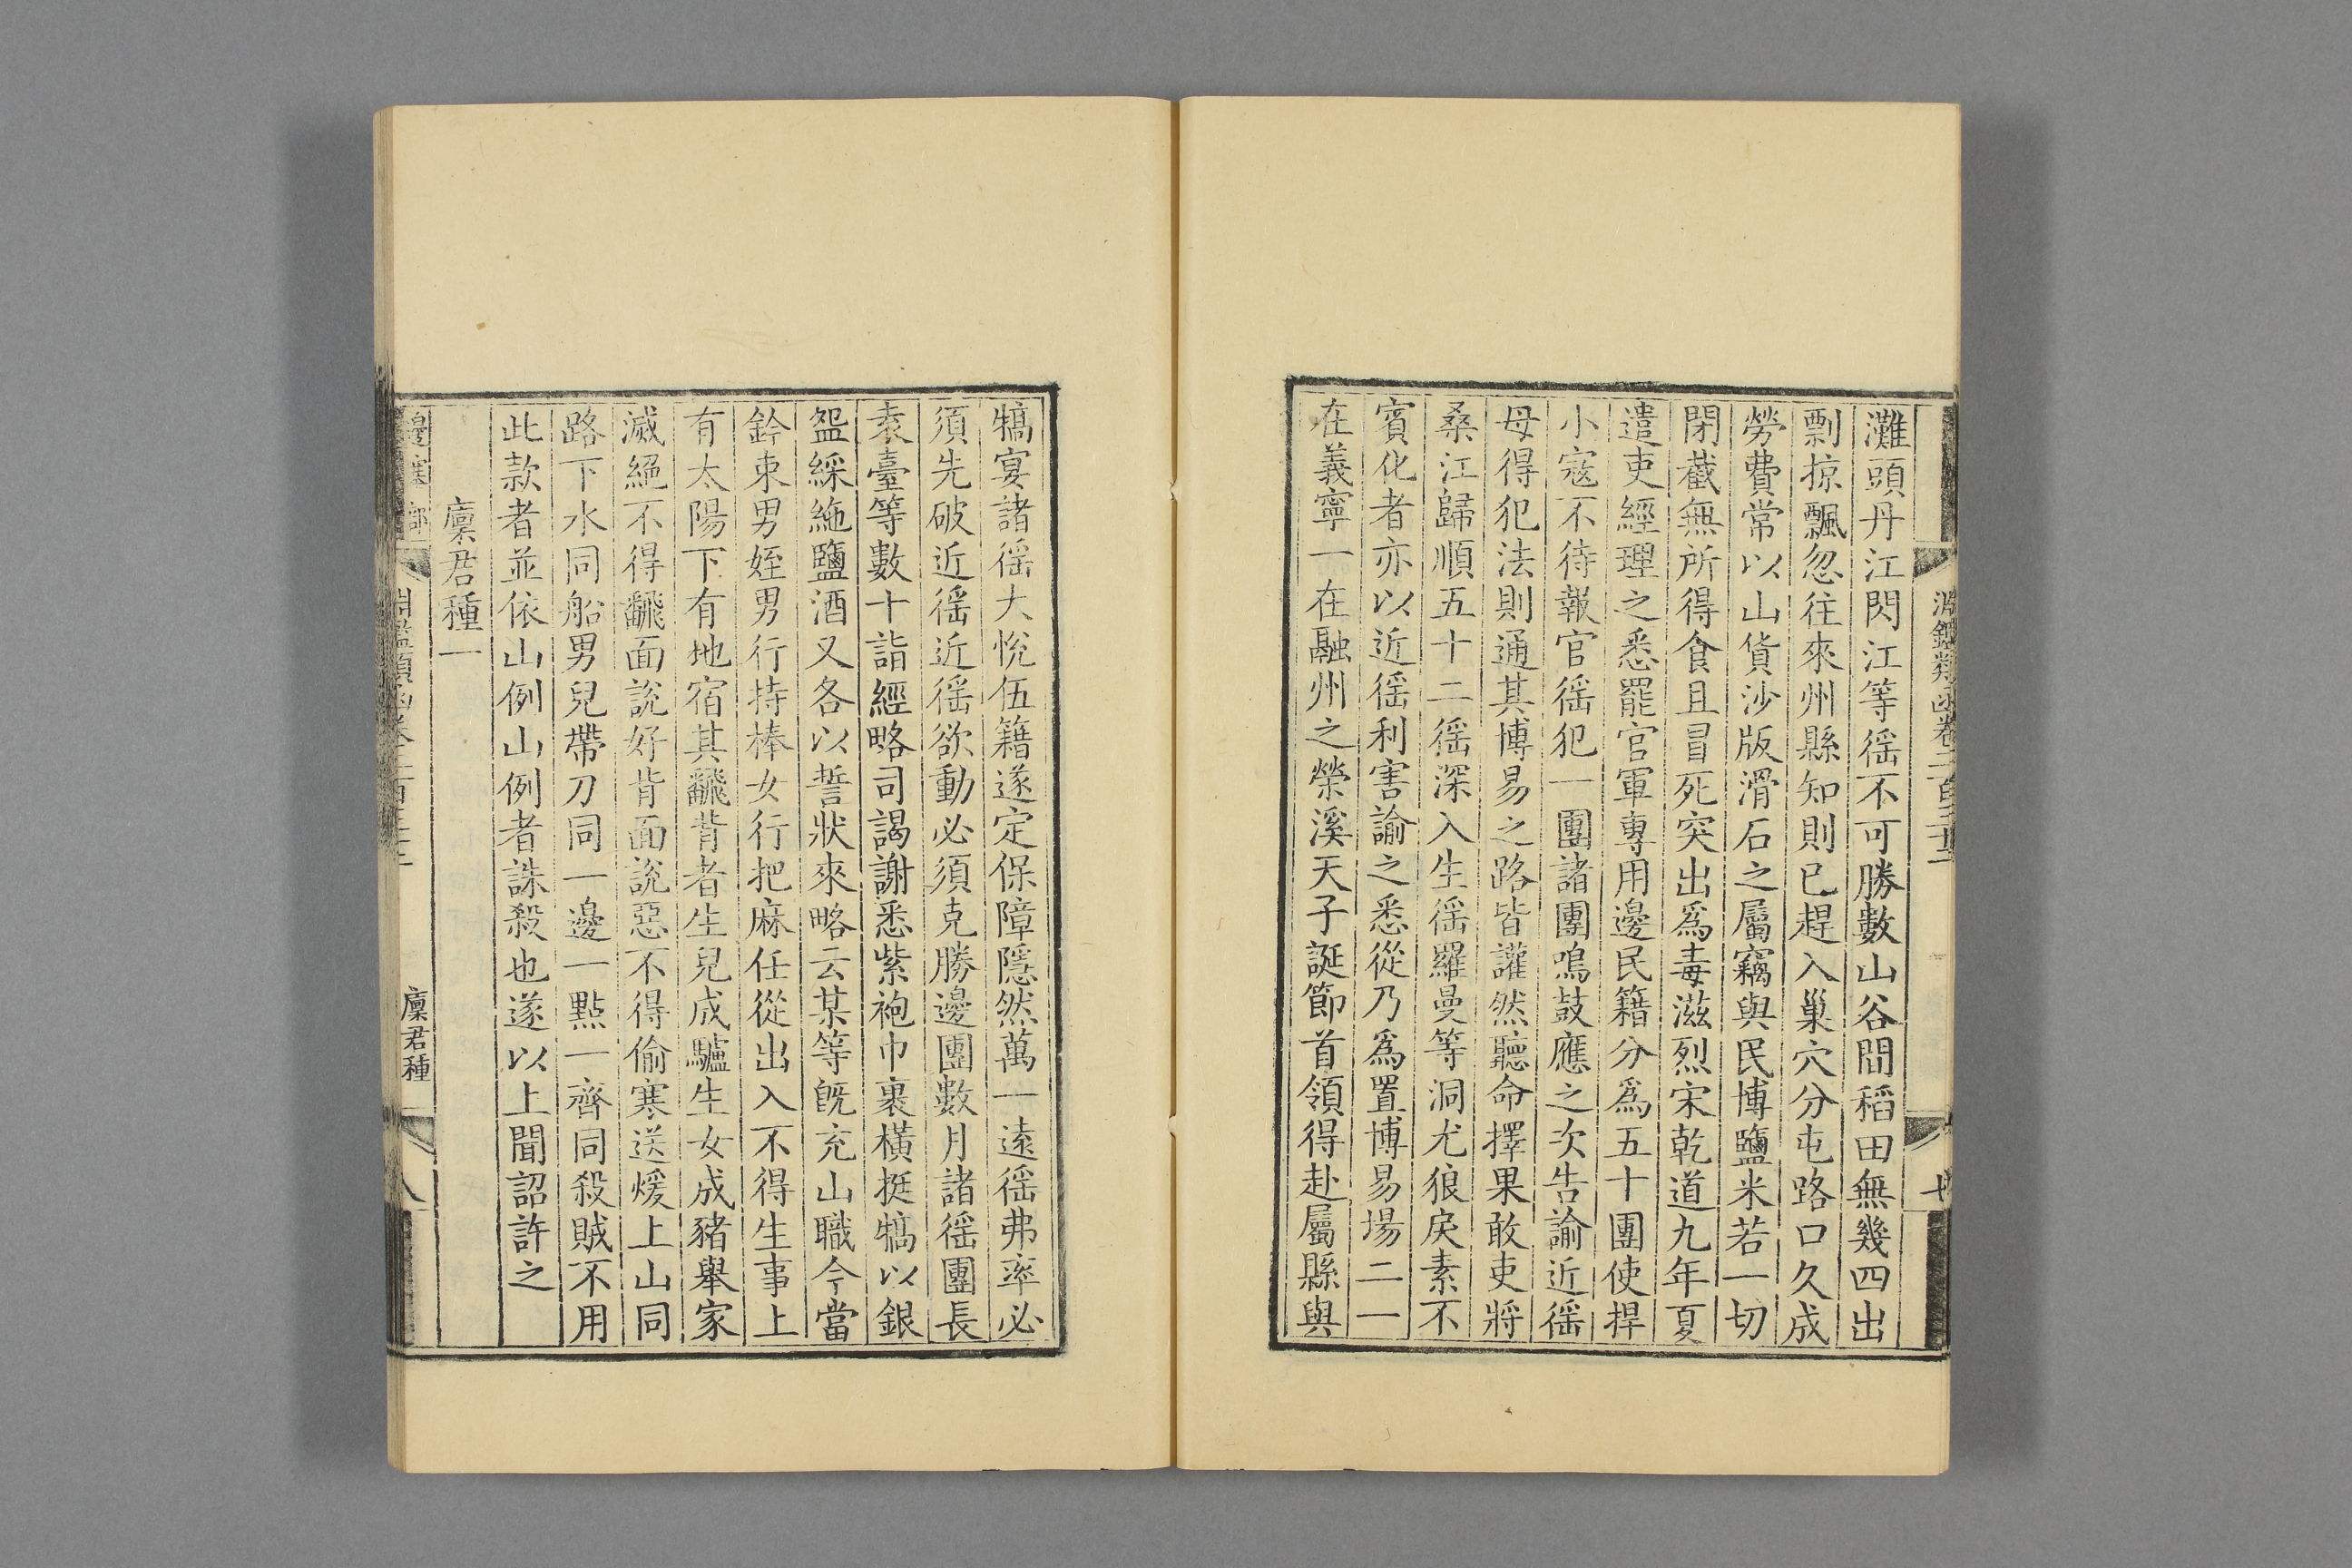 灘頭丹江閃江等徭不可勝數山谷間稻田無幾四出
剽掠飄忽往來州縣知則已趕入巢穴分屯路口久成
勞費常以山貨沙版滑石之屬竊與民博鹽米若一切
閉截無所得食且冒死突出爲毒滋烈宋乾道九年夏
遣吏經理之悉罷官軍專用邊民籍分爲五十團使捍
小寇不待報官徭犯一團諸團鳴鼓應之次告諭近徭
毋得犯法則通其博易之路皆讙然聽命擇果敢吏將
桑江歸順五十二徭深入生徭羅曼等洞尤狼戾素不
賓化者亦以近徭利害諭之悉從乃爲置博易場二一
在義寧一在融州之榮溪天子誕節首領得赴屬縣與
犒宴諸徭大悅伍籍遂定保障隱然萬一遠徭弗率必
須先破近徭近徭欲動必須克勝邊團數月諸徭團長
袁臺等數十詣經略司謁謝悉紫袍巾裹橫挺犒以銀
盌綵絁鹽酒又各以誓狀來略云某等旣充山職今當
鈐束男姪男行持棒女行把麻任從出入不得生事上
有太陽下有地宿其飜背者生兒成驢生女成豬舉家
滅絕不得飜面說好背面說惡不得偷寒送煖上山同
路下水同船男兒帶刀同一邊一點一齊同殺賊不用
此款者並依山例山例者誅殺也遂以上聞詔許之
廩君種一
邊塞部
廩君種
八